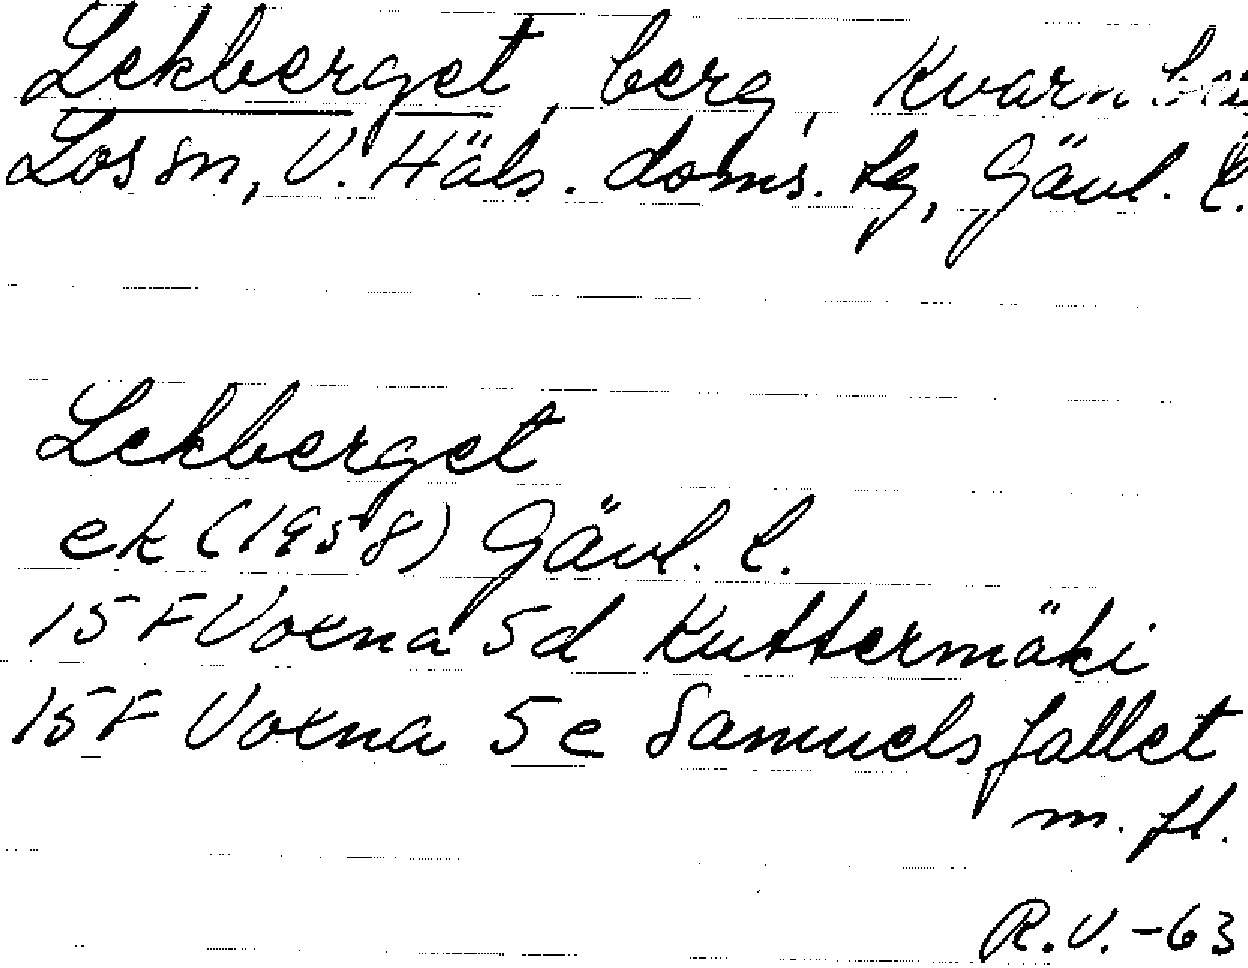 Lekberget, berg, Kvarn
Los sn, V. Häls. doms. tg, Gävl. l.
Lekberget
ek (1958) Gävl. l.
15 F Voxna 5d Kuttermäki
15 F Voxna 5e Samuelsfallet
m. fl.
R.V. -63